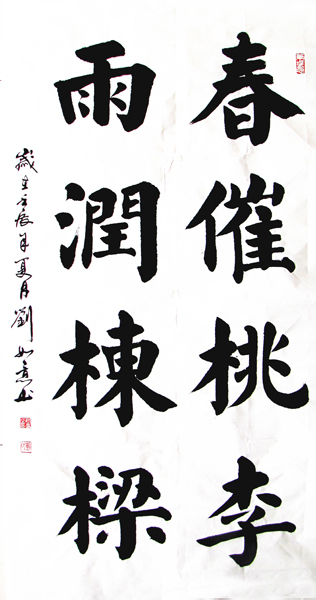 春催桃李
雨潤棟樑
歲在壬辰年夏月劉如意书